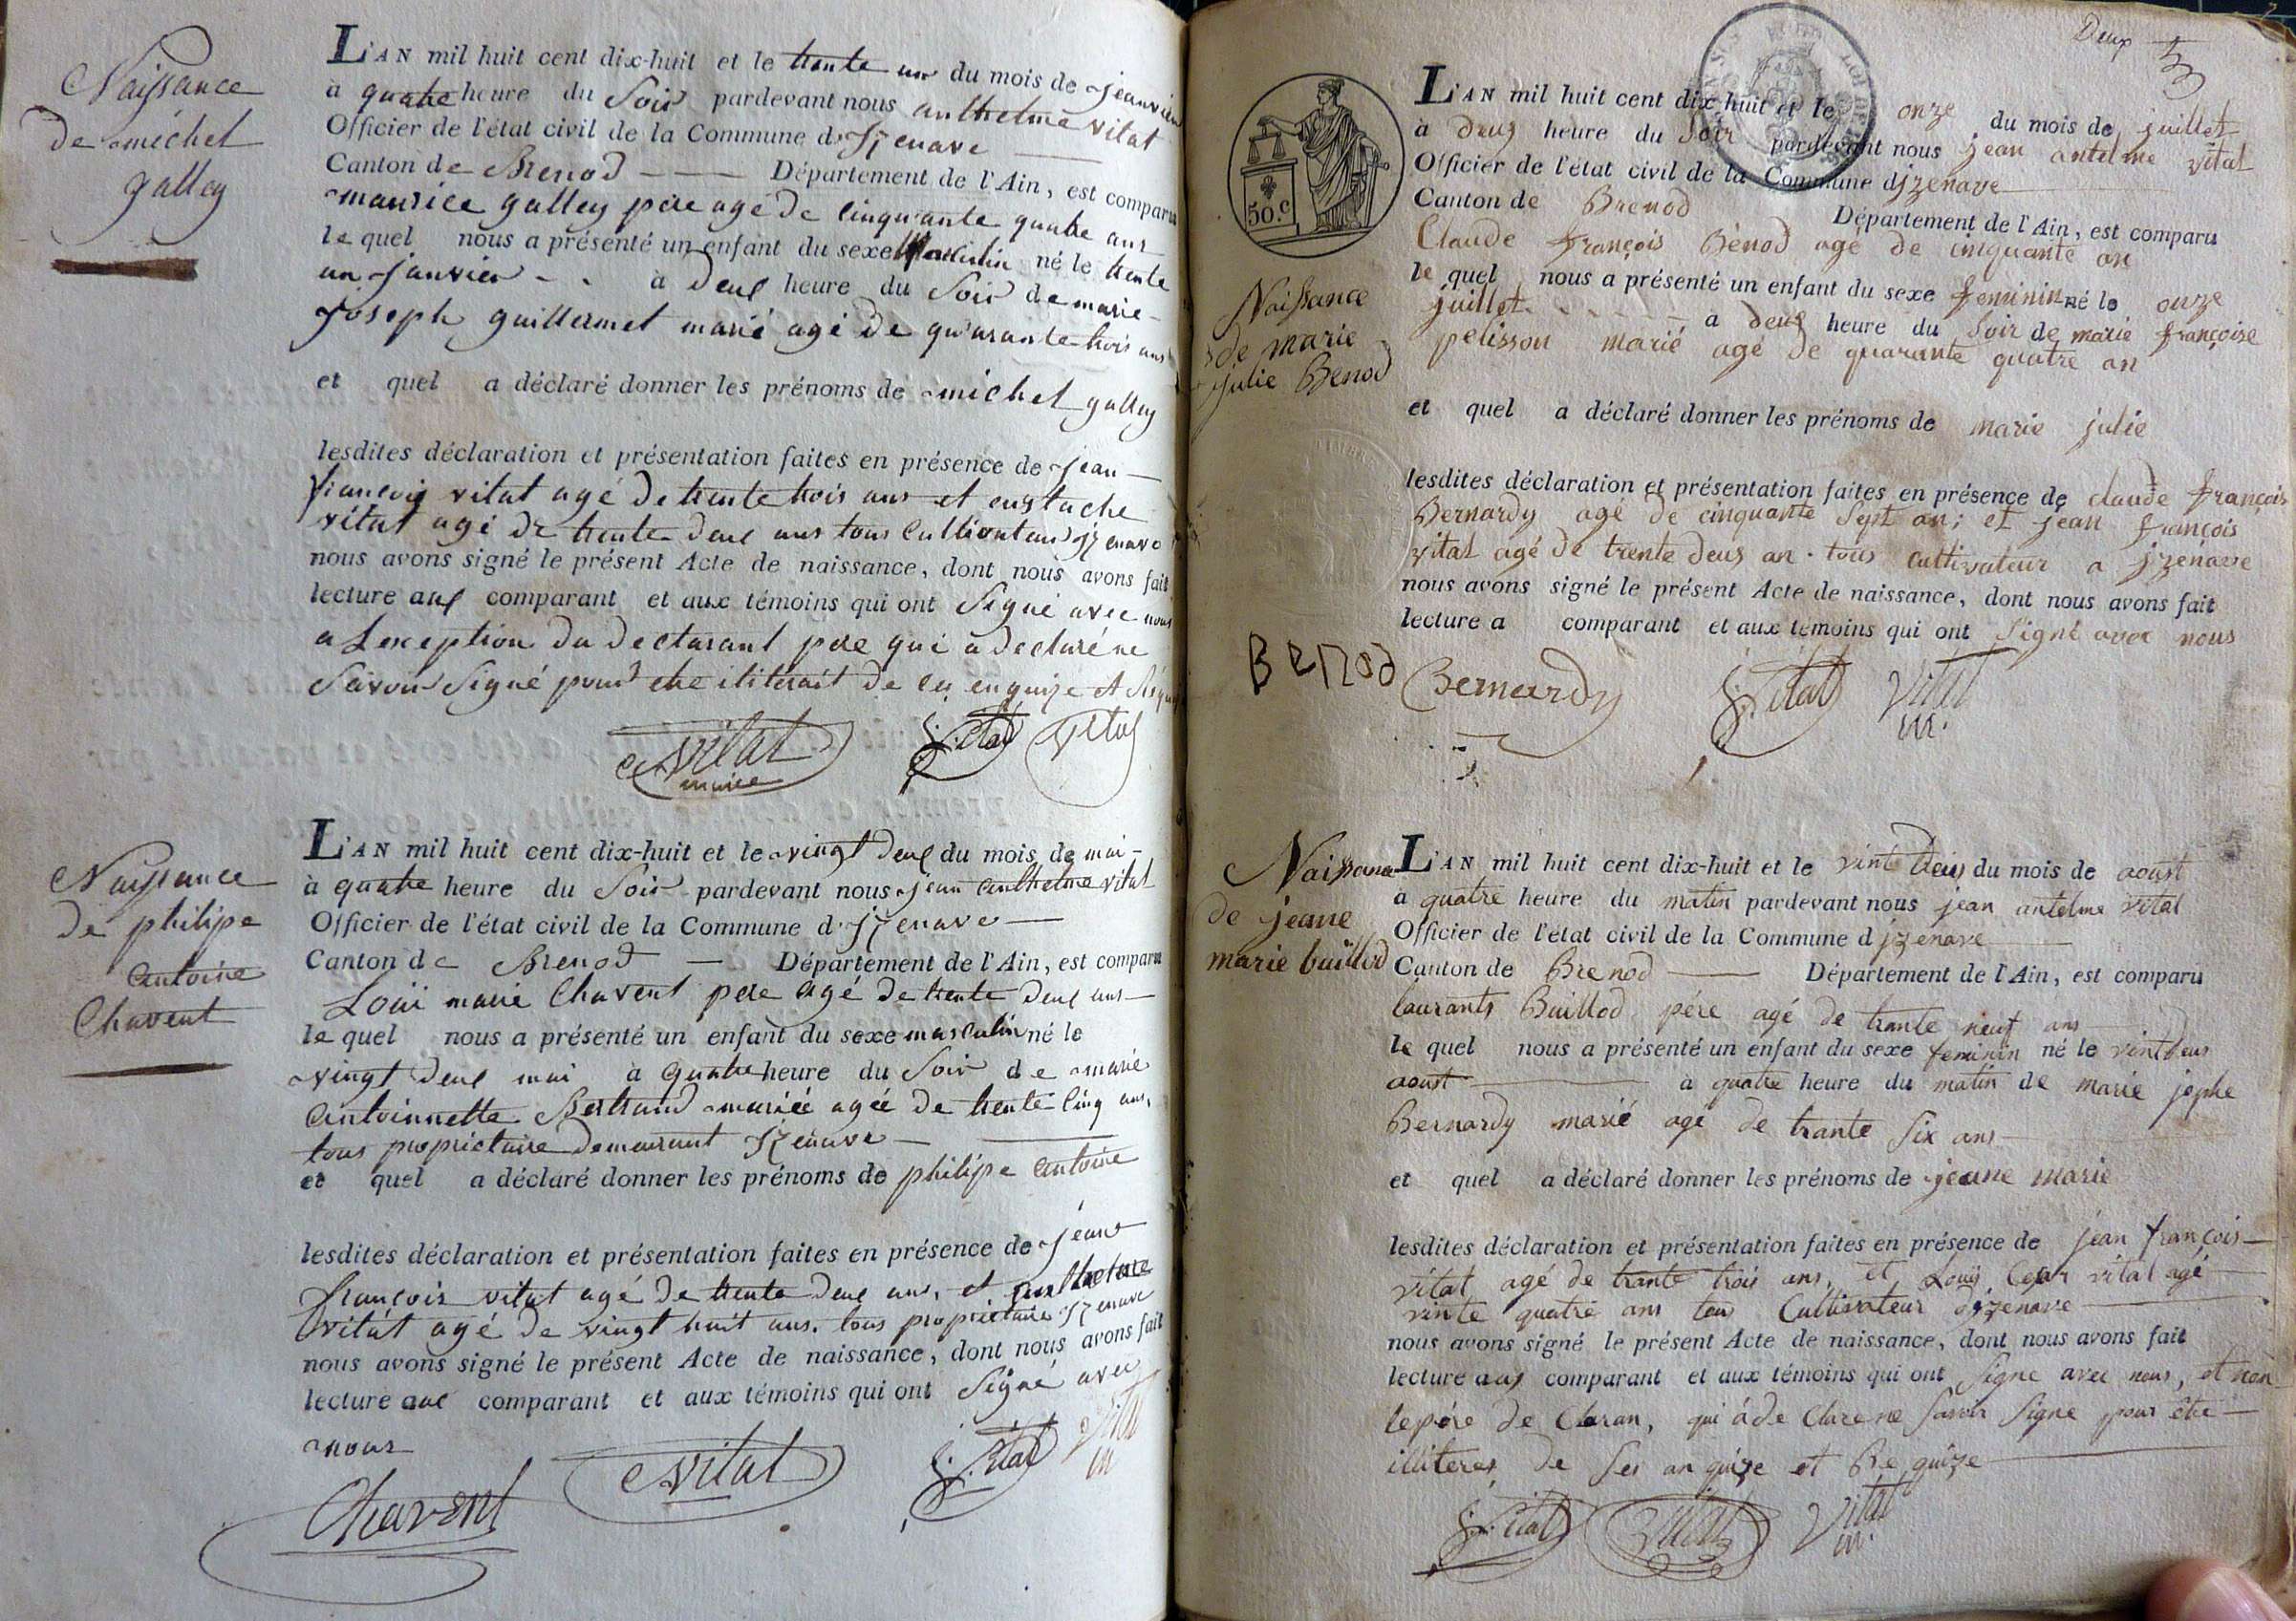 Naissance
de michel
galley
L'AN mil huit cent dix-huit et le trente un du mois de janvier
à quatre heure du soir pardevant nous anthelme vital
Officier de l'état civil de la Commune d'izenave
Canton de Brenod Département de l'Ain, est comparu
maurice galley père agé de cinquante quatre ans
le quel nous a présenté un enfant du sexe Masculin né le trente
un janvier à deux heure du soir de marie
joseph guillermet marié agé de quarante trois ans
et quel a déclaré donner les prénoms de michel galley
lesdites déclaration et présentation faites en présence de jean
françois vital agé de trente trois ans et eustache
vital agé de trente deux ans tous cultivateur izenave
nous avons signé le présent Acte de naissance, dont nous avons fait
lecture aux comparant et aux témoins qui ont signé avec nous
a Lexception du declarant père qui a declaré ne
savoir signé pour etre iliterait de ce enquize et
vital
maire
j. f. vital
vital
Naissance
de philipe
antoine
Chavent
L'AN mil huit cent dix-huit et le vingt deux du mois de mai
à quatre heure du soir pardevant nous jean anthelme vital
Officier de l'état civil de la Commune d'izenave
Canton de Brenod Département de l'Ain, est comparu
Loui marie Chavent père agé de trente deux ans
le quel nous a présenté un enfant du sexe masculin né le
vingt deux mai à quatre heure du soir de marie
antoinette Bertrand mariée agée de trente cinq ans,
tous propriétaire demeurant izenave
et quel a déclaré donner les prénoms de philipe antoine
lesdites déclaration et présentation faites en présence de jean
françois vital agé de trente deux ans, et anthelme
vital agé de vingt huit ans. tous propriétaire izenave
nous avons signé le présent Acte de naissance, dont nous avons fait
lecture aux comparant et aux témoins qui ont signé avec
nous
Chavent
vital
j. f. vital
vital
m
Deux
50.c
Naissance
de marie
julie Benod
L'AN mil huit cent dix-huit et le onze du mois de juillet
à deux heure du soir pardevant nous jean antelme vital
Officier de l'état civil de la Commune d izenave
Canton de Brenod Département de l'Ain, est comparu
Claude françois Bénod agé de cinquante an
le quel nous a présenté un enfant du sexe feminin né le onze
juillet à deux heure du soir de marie françoise
pelisson marié agé de quarante quatre an
et quel a déclaré donner les prénoms de marie julie
lesdites déclaration et présentation faites en présence de claude françois
Bernardy agé de cinquante sept an; et jean françois
vital agé de trente deus an. tous cultivateur a jzenave
nous avons signé le présent Acte de naissance, dont nous avons fait
lecture a comparant et aux témoins qui ont signé avec nous
Benod
Bernardy
j. f. vital
Vital
m.
Naissance
de jeane
marie buillod
L'AN mil huit cent dix-huit et le vint deus du mois de aoust
à quatre heure du matin pardevant nous jean antelme vital
Officier de l'état civil de la Commune d jzenave
Canton de Brenod Département de l'Ain, est comparu
laurants Buillod père agé de trante neuf ans
le quel nous a présenté un enfant du sexe feminin né le vint deus
aoust à quatre heure du matin de marie jophe
Bernardy marié agé de trante six ans
et quel a déclaré donner les prénoms de jeane marie
lesdites déclaration et présentation faites en présence de jean françois
vital agé de trante trois ans, et Louis Cesar vital agé
vinte quatre ans tou Cultivateur d'jzenave
nous avons signé le présent Acte de naissance, dont nous avons fait
lecture aux comparant et aux témoins qui ont signe avec nous, et non
le pére de Claran, qui à de Clare ne savoir signe pour être
illiteres de ses an quize et Re quize
j. f. vital
vital
Vital
m.